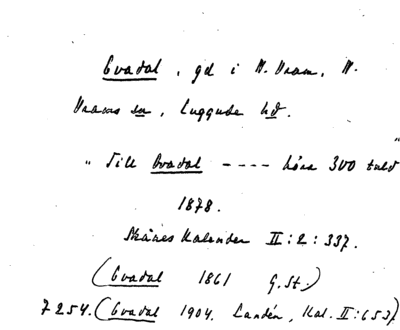 Evadal, gd i N. Vram, N.
Vrams sn, Luggude hd.
"Till Evadal ---- höra 300 tnld"
1878.
Skånes Kalender II:2:337.
(Evadal 1861 G.St.)
7254. (Evadal 1904. Landén, Kal. II:653)